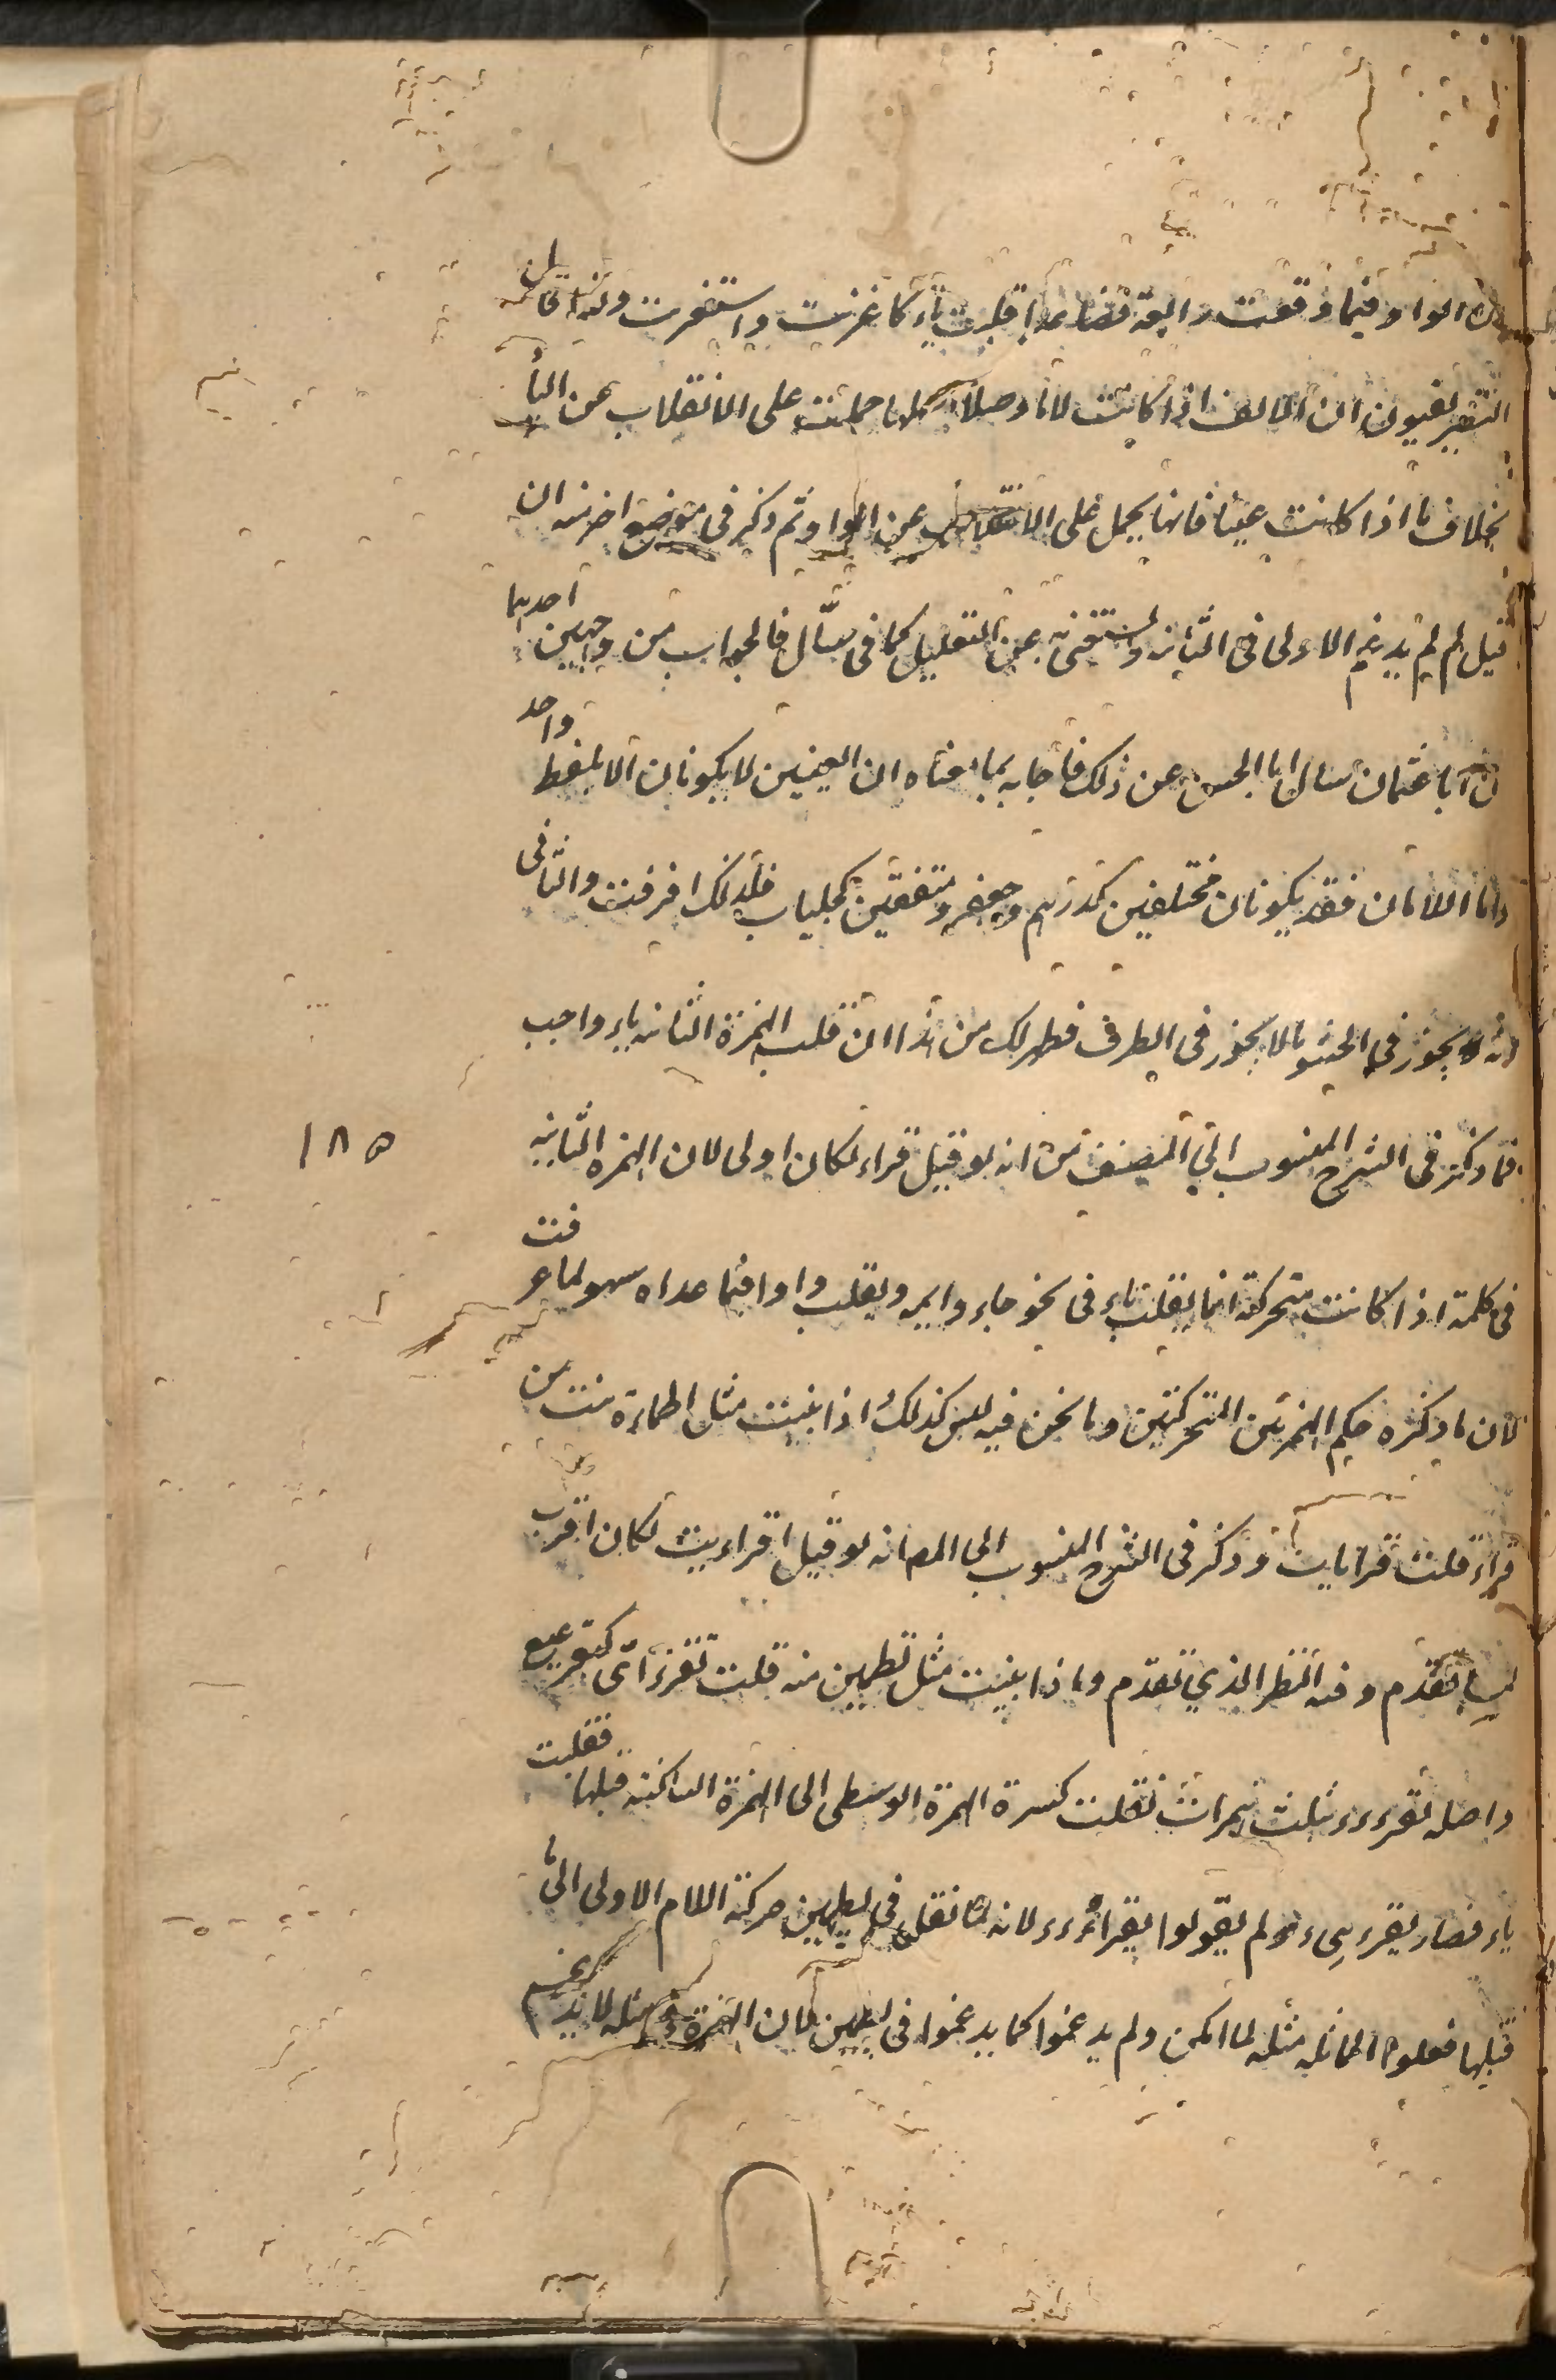 الواو فيما وقعت رابعة فصاعدا قلبت ياء كاغزيت واستغزيت ولهذا قال
التصريفيون ان الالف اذا كانت لاما وجهل اصلها حملت على الانقلاب عن اليا
بخلاف ما اذا كانت عينا فانها يحمل على الانقلاب عن الواو ثم ذكر في موضع اخر منه ان
قيل لم لم يدغم الاولى في الثانية ويستغنى به عن التقليل كما في سأّل فالجواب من وجهين احديهما
ان ابا عثمان سال ابا الحسن عن ذلك فاجابه بما معناه ان العينين لا يكونان الا بلفظ واحد
واما اللامان فقد يكونان مختلفين كدرهم وجعفر ومتفقين كجلباب فلذلك افرقت والثاني
انه يجوز في الحشو ما لا يجوز في الطرف فظهر لك من هذا ان قلب الهمزة الثانيه ياء واجب
فما ذكر في الشرح المنسوب الي المصنف من انه لو قيل قراء لكان اولى لان الهمزه الثانيه
١٨٥
في كلمة اذا كانت متحركة انما يقلب ياء في نحو جاء وايمه ويقلب واوا فيما عداه سهو لما عرفت
لان ما ذكره حكم الهمزتين المتحركتين وما نحن فيه ليس كذلك اذا بنيت مثل اطماءة منت من
قراءة قلت قرايات وذكر في الشرح المنسوب الى المص انه لو قيل اقراءيت لكان اقرب
لما تقدم وفيه النظر الذي تقدم واذا بنيت مثل تطمين منه قلت تقرءائى كتقرعيع
واصله تقرءءء بثلث همزات نقلت كسرة الهمزة الوسطى الى الهمزة الساكنة قبلها فقلبت
ياء فصار يقرءيء ولم يقولوا يقراءءء لانه لما نقل في يطمين حركة اللام الاولى الى ما
قبلها فعلوا الماثله مثله لما امكن ولم يدغموا كما يدغموا في يطمين لان الهمزة في مثله لا يدغم